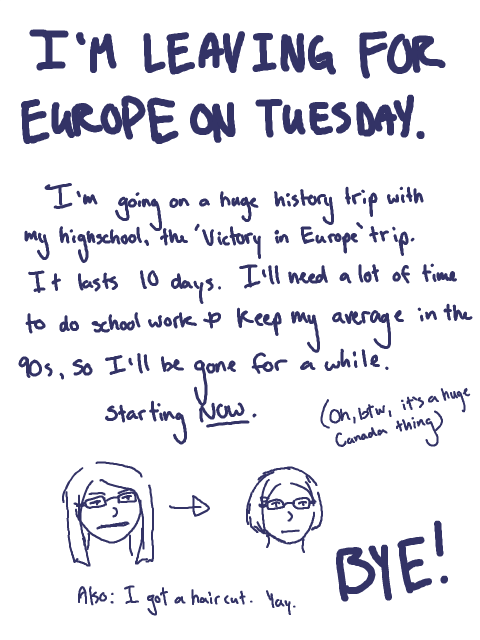 I'M LEAVING FOR
EUROPE ON TUESDAY.
I'm going on a huge history trip with
my highschool, the 'Victory in Europe' trip.
It lasts 10 days. I'll need a lot of time
to do school work & keep my average in the
90s, so I'll be gone for a while.
Starting NOW.
(Oh, btw, it's a huge
Canada thing)
BYE!
Also: I got a haircut. Yay.